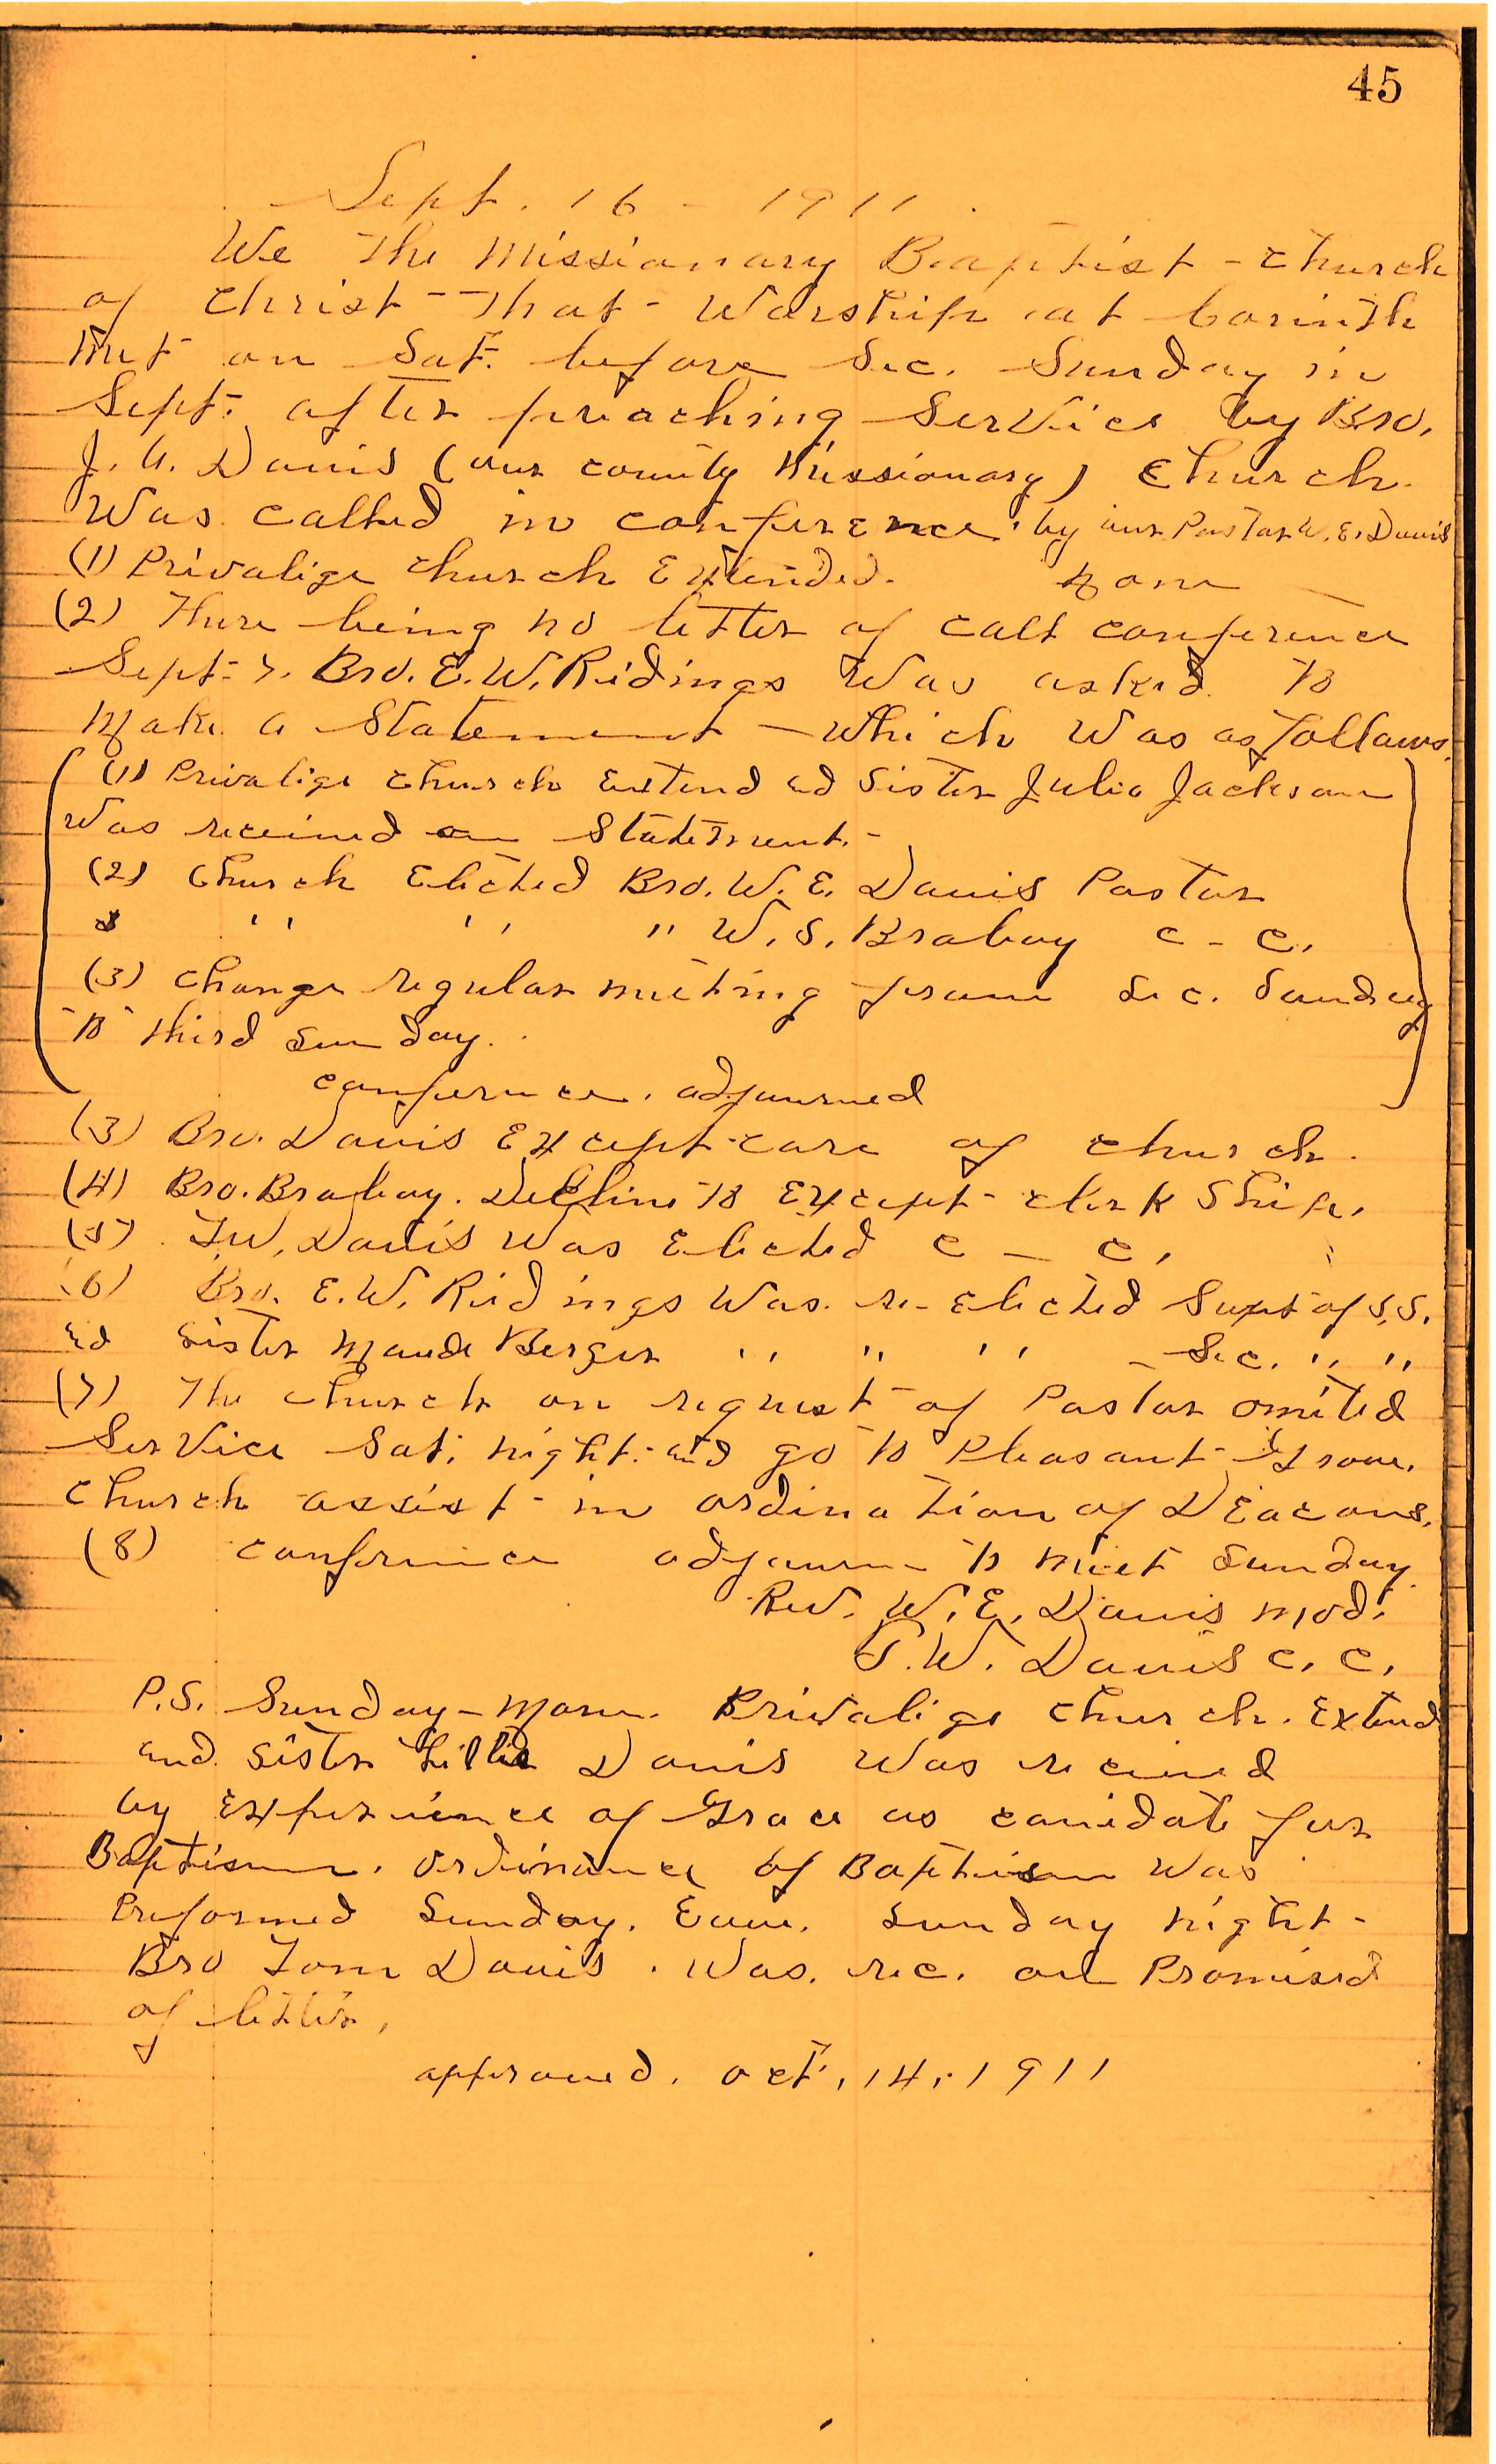 45
Sept. 16 - 1911.
We The Missionary Baptist - church
of christ - That - Worship at Corinth
Met on Sat. before Sec. Sunday in
Sept. after preaching Service by Bro.
J. A. Davis (our county Missionary) church
Was called in conference by our Pastor W. E. Davis
(1) Privalige church Extended. none
(2) There being no letter of call conference
Sept. 7. Bro. E. W. Ridings Was asked to
Make a Statement - which Was as follows.
(1) Privalige church Extend ed Sister Julia Jackson
Was received on Statement. -
(2) Church Elected Bro. W. E. Davis Pastor
& " " " W. S. Braboy c - c.
(3) change regular meeting from Sec. Sunday
to third Sunday.
conference. adjourned
(3) Bro. Davis Except care of church.
(4) Bro. Braboy. Decline to Except - clerk Ship.
(5) T.W. Davis Was Elected c - c.
(6) Bro. E. W. Ridings Was re-Elected Supt of S. S.
ed Sister Maude Berger " " " - Sec. " "
(7) The church on request of Pastor omited
Service Sat. night. and go to Pleasant Grove.
church assist in ordination of Deacons.
(8) conference adjourn to meet Sunday
Rev. W. E. Davis Mod.
T. W. Davis c. c.
P.S. Sunday - Morn. Privalige church. Extend
and Sister Lillie Davis Was recived
by Experience of Grace as canidate for
Baptism. ordinance of Baptism Was
Preformed Sunday. Eave. Sunday night -
Bro Tom Davis. Was. rec. on Promised
of letter.
approved. oct. 14, 1911